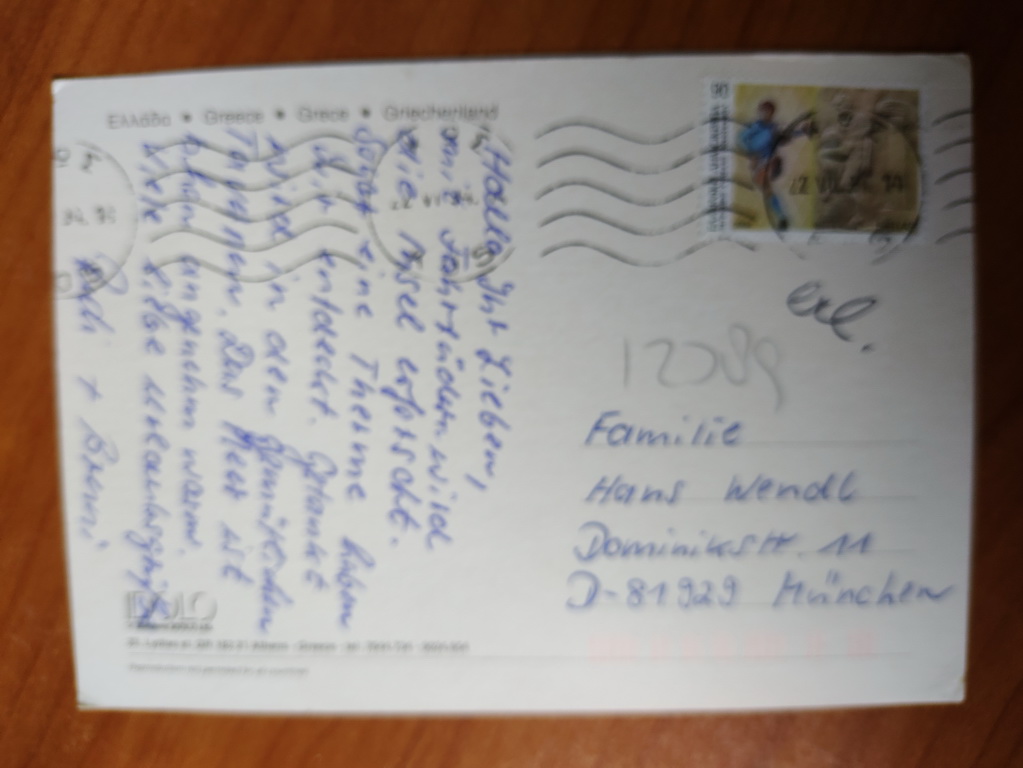 Ελλάδα • Greece • Grece • Griechenland
Hallo Ihr Lieben,
vom Fahrrädern wird
die Insel erforscht.
Sogar eine Therme haben
wir entdeckt. Getankt
wird in den gemütlichen
Tavernen. Das Meer ist
schon angenehm warm.
Viele liebe Urlaubsgrüße
Rudi + Brunni
90
erl.
Familie
Hans Wendl
Dominikstr. 11
D-81929 München